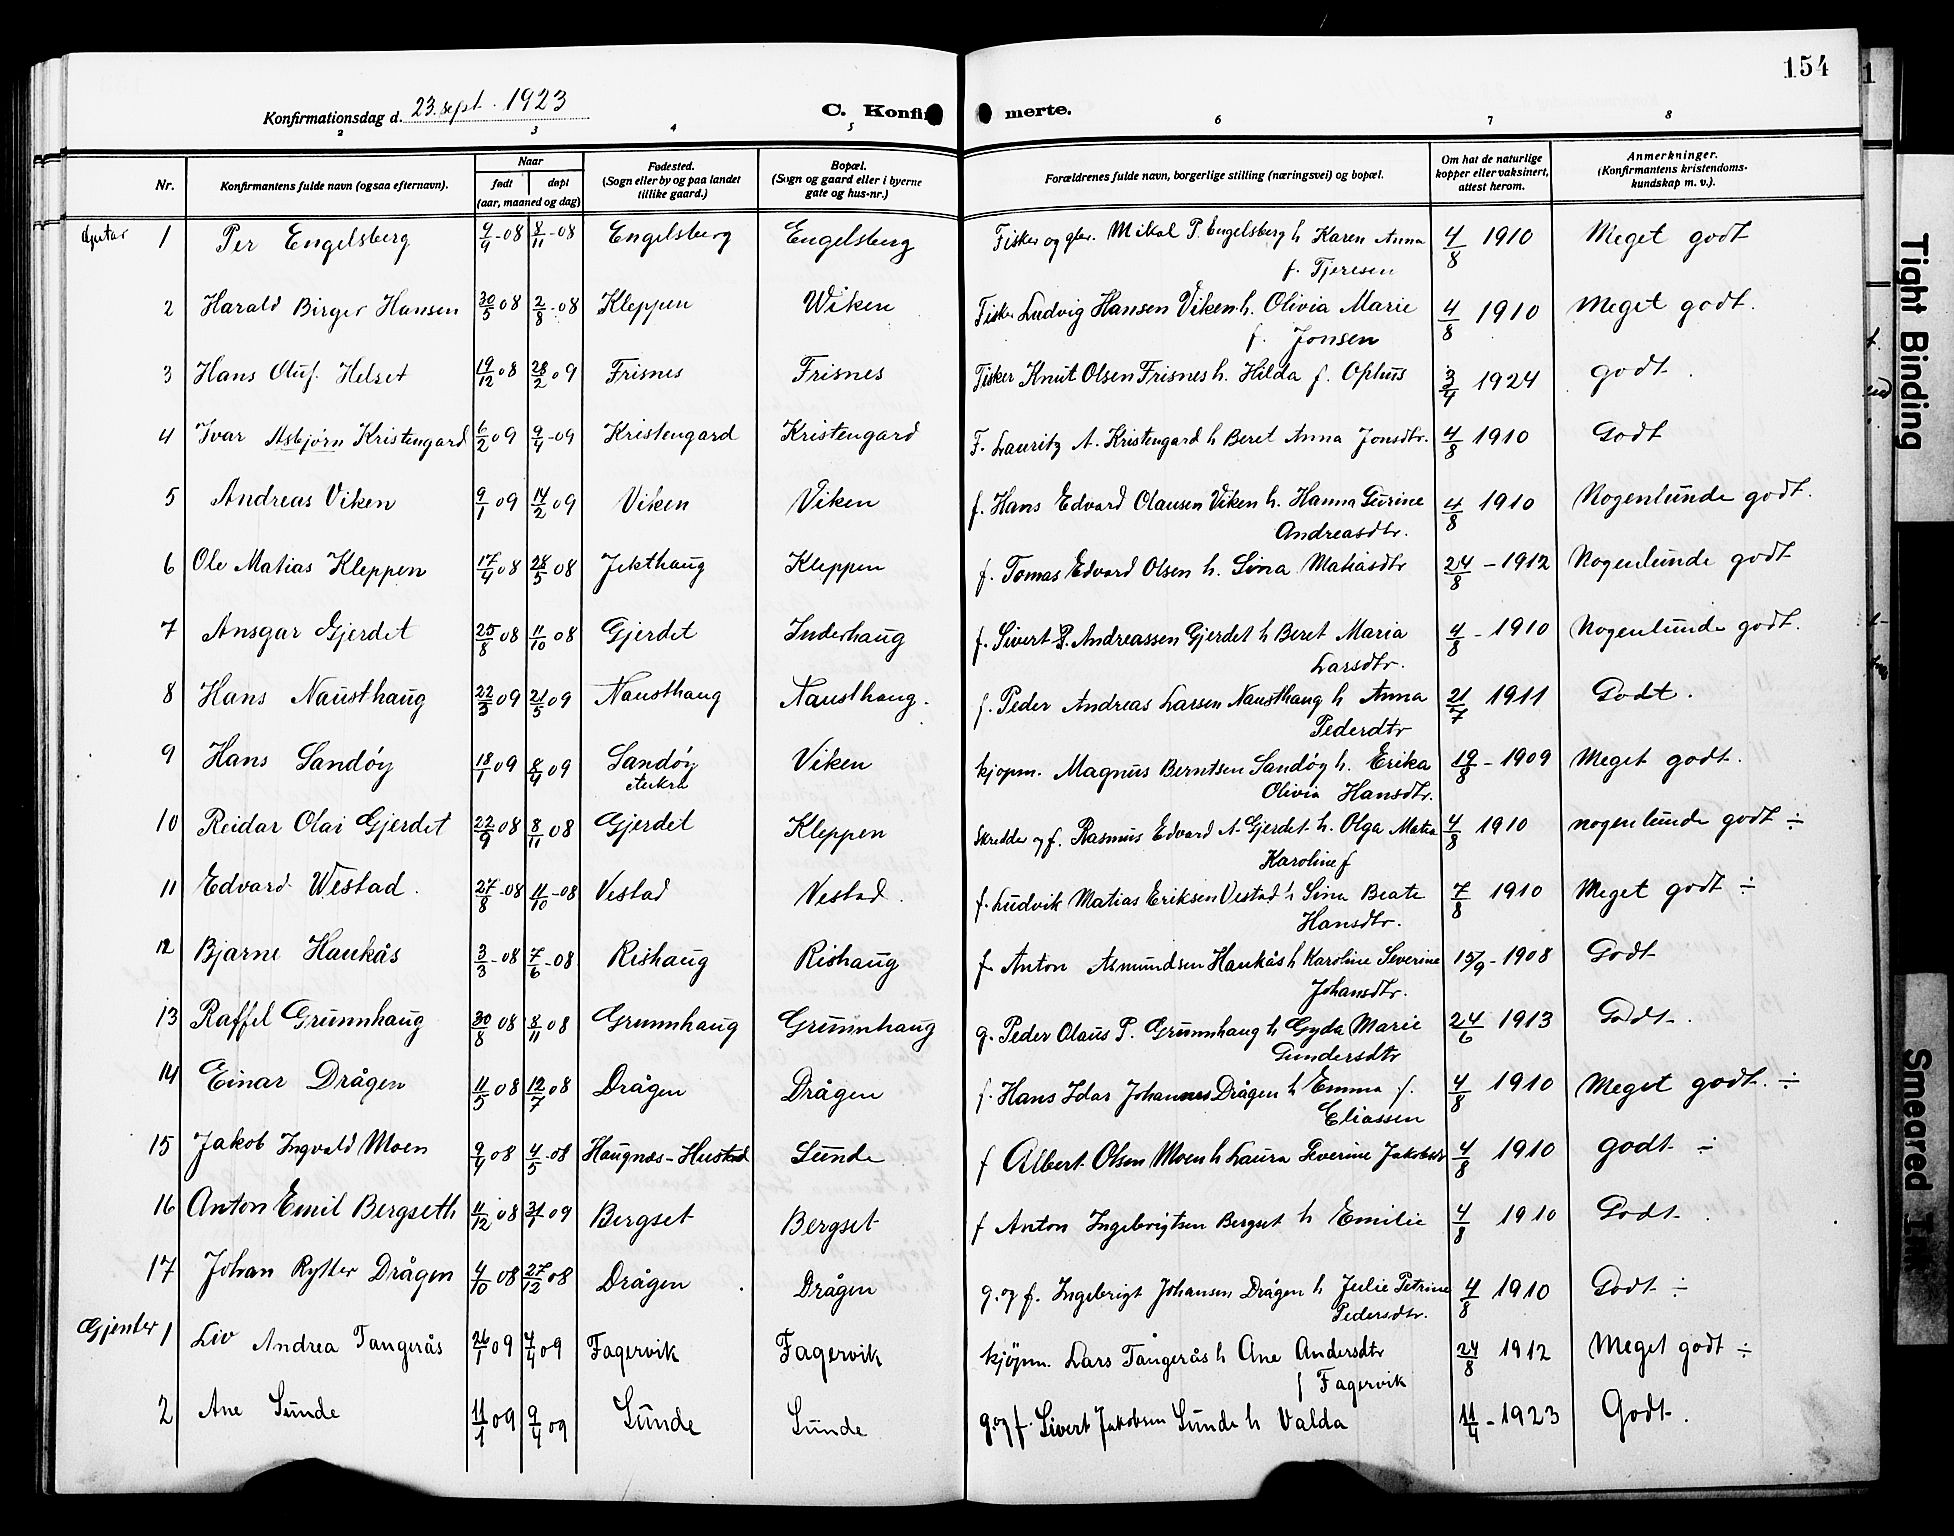 154
Konfirmationsdag d. 23. sept. 1923
C. Konfir merte.
2 3 4 5 6 7 8
Nr. | Konfirmantens fulde navn (ogsaa efternavn). | Naar født døpt (aar, maaned og dag) | Fødested. (Sogn eller by og paa landet tillike gaard.) | Bopæl. (Sogn og gaard eller i byerne gate og hus-nr.) | Forældrenes fulde navn, borgerlige stilling (næringsvei) og bopæl. | Om hat de naturlige kopper eller vaksinert, attest herom. | Anmerkninger. (Konfirmantens kristendoms-kundskap m. v.).
1 Per Engelsberg 4/4-08 8/11-08 Engelsberg Engelsberg Fisker og gbr. Mikal P. Engelsberg h Karen Anna 4/8 1910 Meget godt
f. Tjeresen
2 Harald Birger Hansen 30/5 08 2/8-08 Kleppen Wiken Fisker Ludvig Hansen Viken h. Olivia Marie 4/8 1910 Meget godt.
f. Jonsen
3 Hans Oluf Helset 19/12 08 28/2 09 Frisnes Frisnes Fisker Knut Olsen Frisnes h. Hilda f. Ophus 3/4 1924 godt.
4 Ivar Asbjørn Kristengard 6/2 09 9/4-09 Kristengard Kristengard F. Lauritz A. Kristengard h Beret Anna Jonsdtr. 4/8 1910 Godt
5 Andreas Viken 9/1 09 14/2 09 Viken Viken f. Hans Edvard Olausen Viken h. Hanna Gurine 4/8 1910 Nogenlunde godt.
Andreasdtr.
6 Ole Matias Kleppen 17/4 08 28/5 08 Jekthaug Kleppen f. Tomas Edvard Olsen h. Lina Matiasdtr 24/8-1912 Nogenlunde godt
7 Ansgar Gjerdet 25/8 08 11/10 08 Gjerdet Inderhaug f. Sivert P. Andreassen Gjerdet h Beret Maria 4/8-1910 Nogenlunde godt.
Larsdtr.
8 Hans Nausthaug 22/3 09 21/5 09 Nausthaug Nausthaug. f. Peder Andreas Larsen Nausthaug h Anna 21/7 1911 Godt.
Pederdtr
9 Hans Sandøy 18/1 09 8/4 09 Sandøy Aukra Viken kjøpm. Magnus Berntsen Sandøy h. Erika 19/8-1909 Meget godt.
Olivia Hansdtr.
10 Reidar Olai Gjerdet 22/9 08 8/11 08 Gjerdet Kleppen Skredder og f. Rasmus Edvard A. Gjerdet h. Olga Matia 4/8 1910 nogenlunde godt ÷
Karoline f
11 Edvard Westad. 27/8-08 11/10-08 Vestad Vestad. f. Ludvik Matias Eriksen Vestad h Sina Beate 7/8 1910 Meget godt ÷
Hansdtr.
12 Bjarne Haukås 3/3-08 7/6-08 Rishaug Rishaug f. Anton Asmundsen Haukås h Karoline Severine 15/9-1908 Godt
Johansdtr.
13 Raffel Grunnhaug 30/8 08 8/11 08 Grunnhaug Grunnhaug g. Peder Olaus P. Grunnhaug h Gyda Marie 24/6 1913 Godt.
Gundersdtr
14 Einar Drågen 11/5 08 12/7 08 Drågen Drågen f. Hans Idar Johannes Drågen h Emma f. 4/8 1910 Meget godt. ÷
Eliassen
15 Jakob Ingvald Moen 9/4 08 4/5-08 Haugnæs-Hustad Sunde f Albert Olsen Moen h Laura Severine Jakobsdtr 4/8 1910 godt ÷
16 Anton Emil Bergseth 11/12 08 31/1 09 Bergset Bergset f Anton Ingebrigtsen Bergset h Emilie 4/8 1910 Godt.
17 Johan Rytter Drågen 4/10 08 27/12 08 Drågen Drågen g. og f. Ingebrigt Johansen Drågen h Julie Petrine 4/8 1910 Godt ÷
Pedersdtr.
Gjenter 1 Liv Andrea Tangerås 26/1 09 4/4 09 Fagervik Fagervik kjøpm. Lars Tangerås h Ane Andersdtr 24/8 1912 Meget godt ÷
f Fagervik
2 Ane Sunde 11/1 09 9/4 09 Sunde Sunde g. og f. Sivert Jakobsen Sunde h Valda 11/4-1923 Godt.
Tight Binding
Smeared Ink